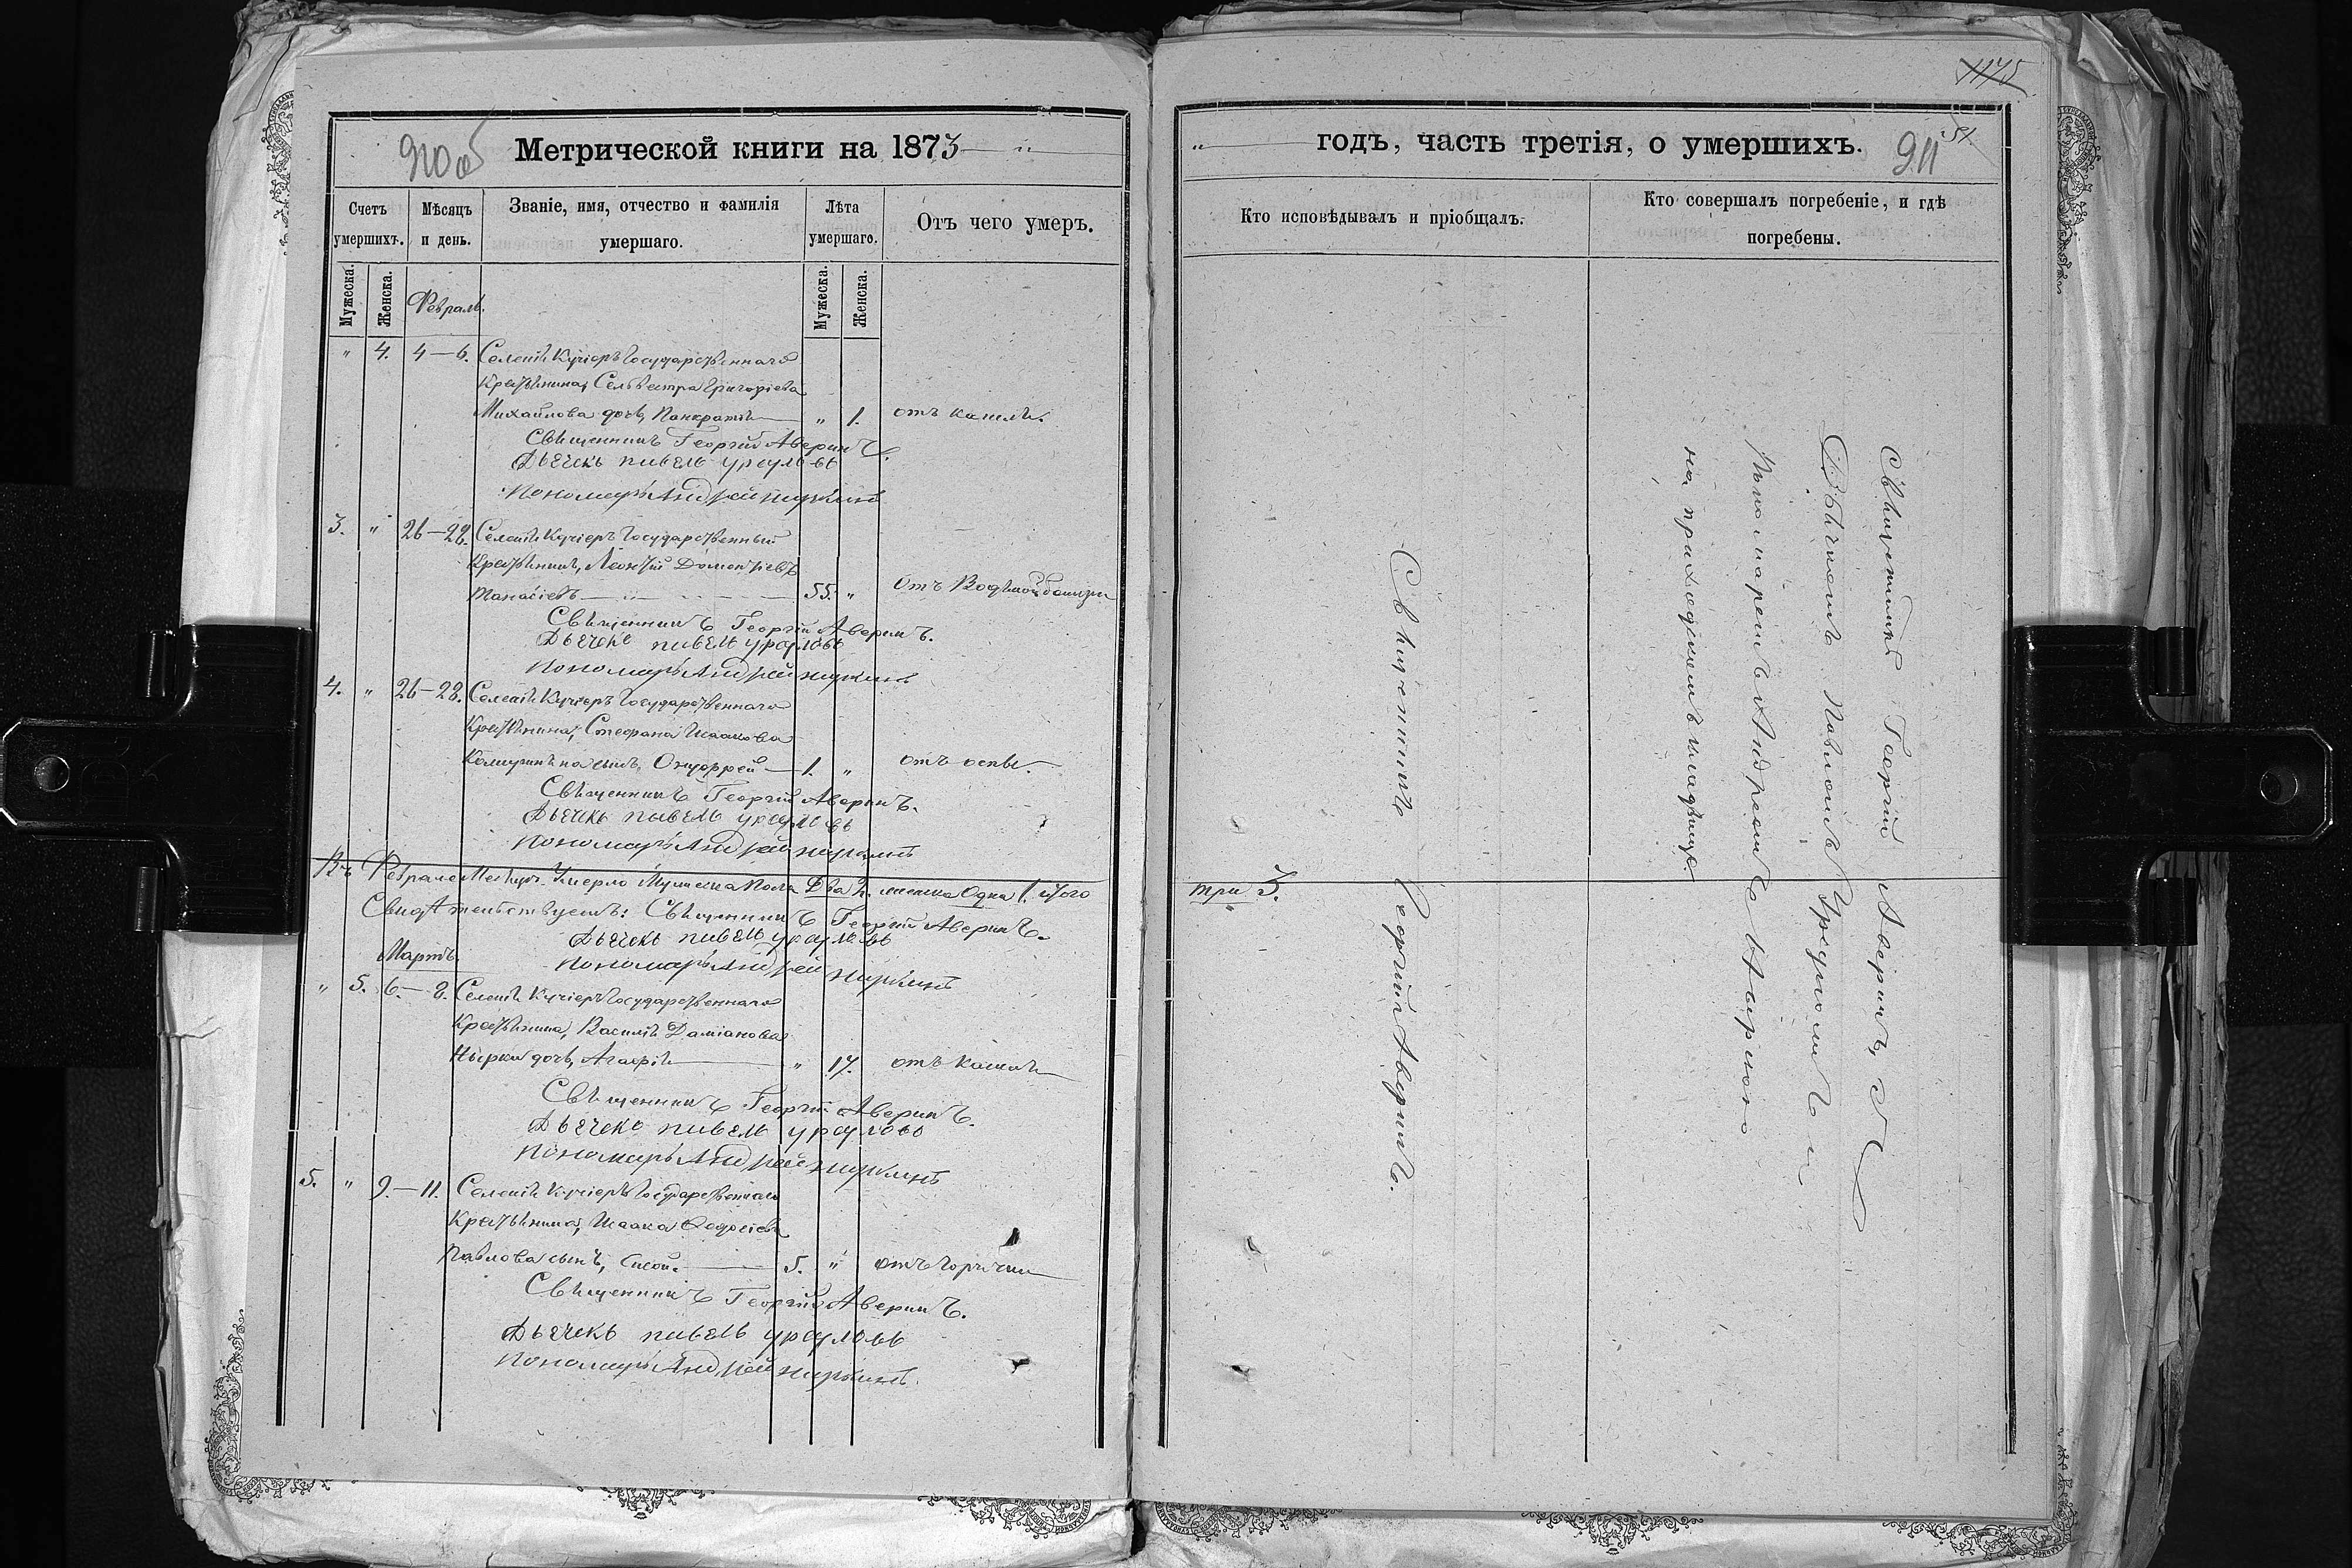 920 об
Метрической книги на 1873
Счетъ умершихъ.
Мѣсяцъ и день.
Званіе, имя, отчество и фамилія умершаго.
Лѣта умершаго.
Отъ чего умеръ.
Мужеска.
Женска.
Мужеска.
Женска.
Февраль.
" 4. 4–6. Селенія Кучіеръ Государственнаго
Крестьянина, Сельвестра Григоріева
Михайлова дочь, " 1. отъ кашля.
Священникъ Георгій Аверинъ.
Дьячекъ павелъ урсуловъ
Пономарь Андрей
3. " 26–28. Селенія Кучіеръ Государственный
Крестьянинъ, Леонтій Доментіевъ
Танасіевъ 55. " отъ Водяной болезни
Священникъ Георгій Аверинъ.
Дьячекъ павелъ урсуловъ
Пономарь Андрей
4. " 26–28. Селенія Кучіеръ Государственнаго
Крестьянина, Стефана Исаакова
сынъ, Онуфрей 1. " отъ оспы.
Священникъ Георгій Аверинъ.
Дьячекъ павелъ урсуловъ
Пономарь Андрей
Въ Февралѣ Месяцѣ Умерло Мужеска пола Два 2. женска Одна 1. итого
Свидѣтельствуемъ: Священникъ Георгій Аверинъ.
Дьячекъ павелъ урсуловъ
Пономарь Андрей
Мартъ.
" 5. 6.–8. Селенія Кучіеръ Государственнаго
Крестьянина, Василія Даміанова
Нырки дочь, Агафія " 17. отъ кашля
Священникъ Георгій Аверинъ.
Дьячекъ павелъ урсуловъ
Пономарь Андрей
5. " 9.–11. Селенія Кучіеръ Государственнаго
Крестьянина, Исаака Федосіева
Павлова сынъ, 5. " отъ горячки
Священникъ Георгій Аверинъ.
Дьячекъ павелъ урсуловъ
Пономарь Андрей
1175
годъ, часть третія, о умершихъ.
911
51.
Кто исповѣдывалъ и пріобщалъ.
Кто совершалъ погребеніе, и гдѣ погребены.
Священникъ Георгій Аверинъ.
Священникъ Георгій Аверинъ, съ
Дьячкомъ Павломъ Урсуломъ и
Пономаремъ Андреемъ
на приходскомъ кладбищѣ.
три 3.